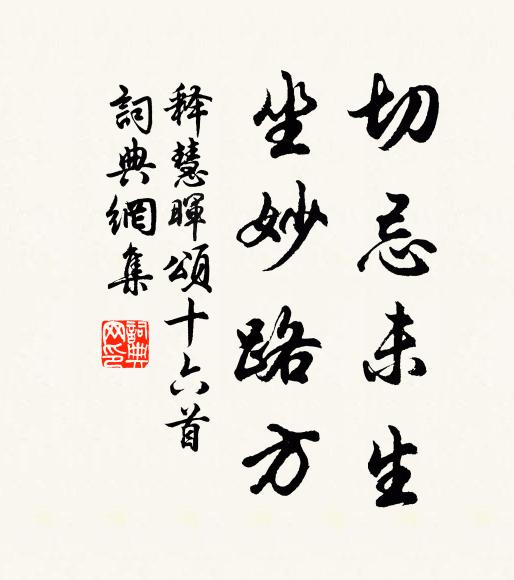 切忌未生
坐妙路方
释慧暉頌十六首
詞典網集
詞典
网印